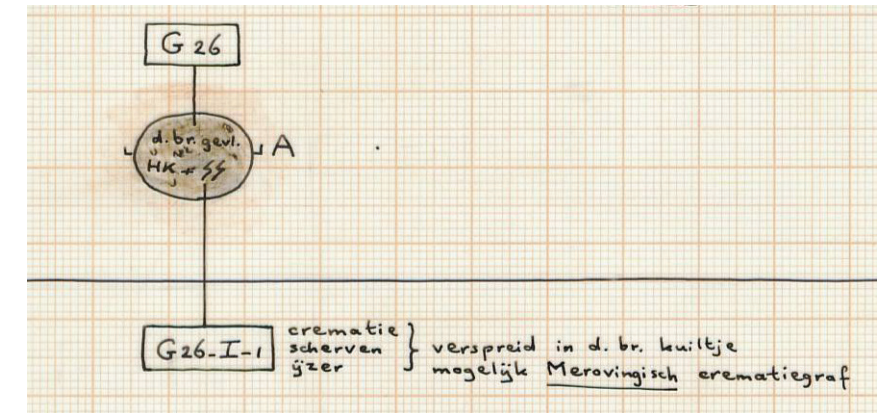 G 26
d. br. gevl.
HK + SS
A
G26-I-1
crematie
scherven
ijzer
verspreid in d. br. kuiltje
mogelijk Merovingisch crematiegraf